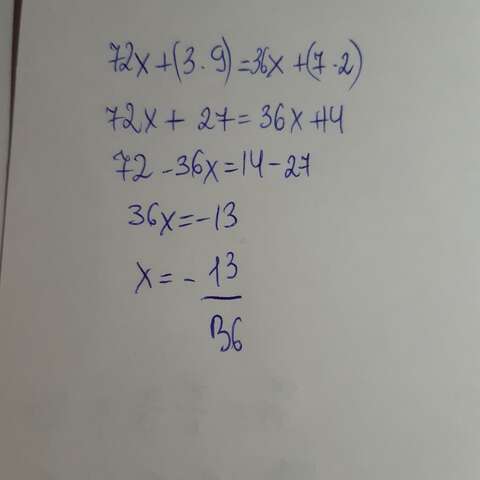 72x+(3·9)=36x+(7·2)
72x+27=36x+14
72-36x=14-27
36x=-13
x=-13/36